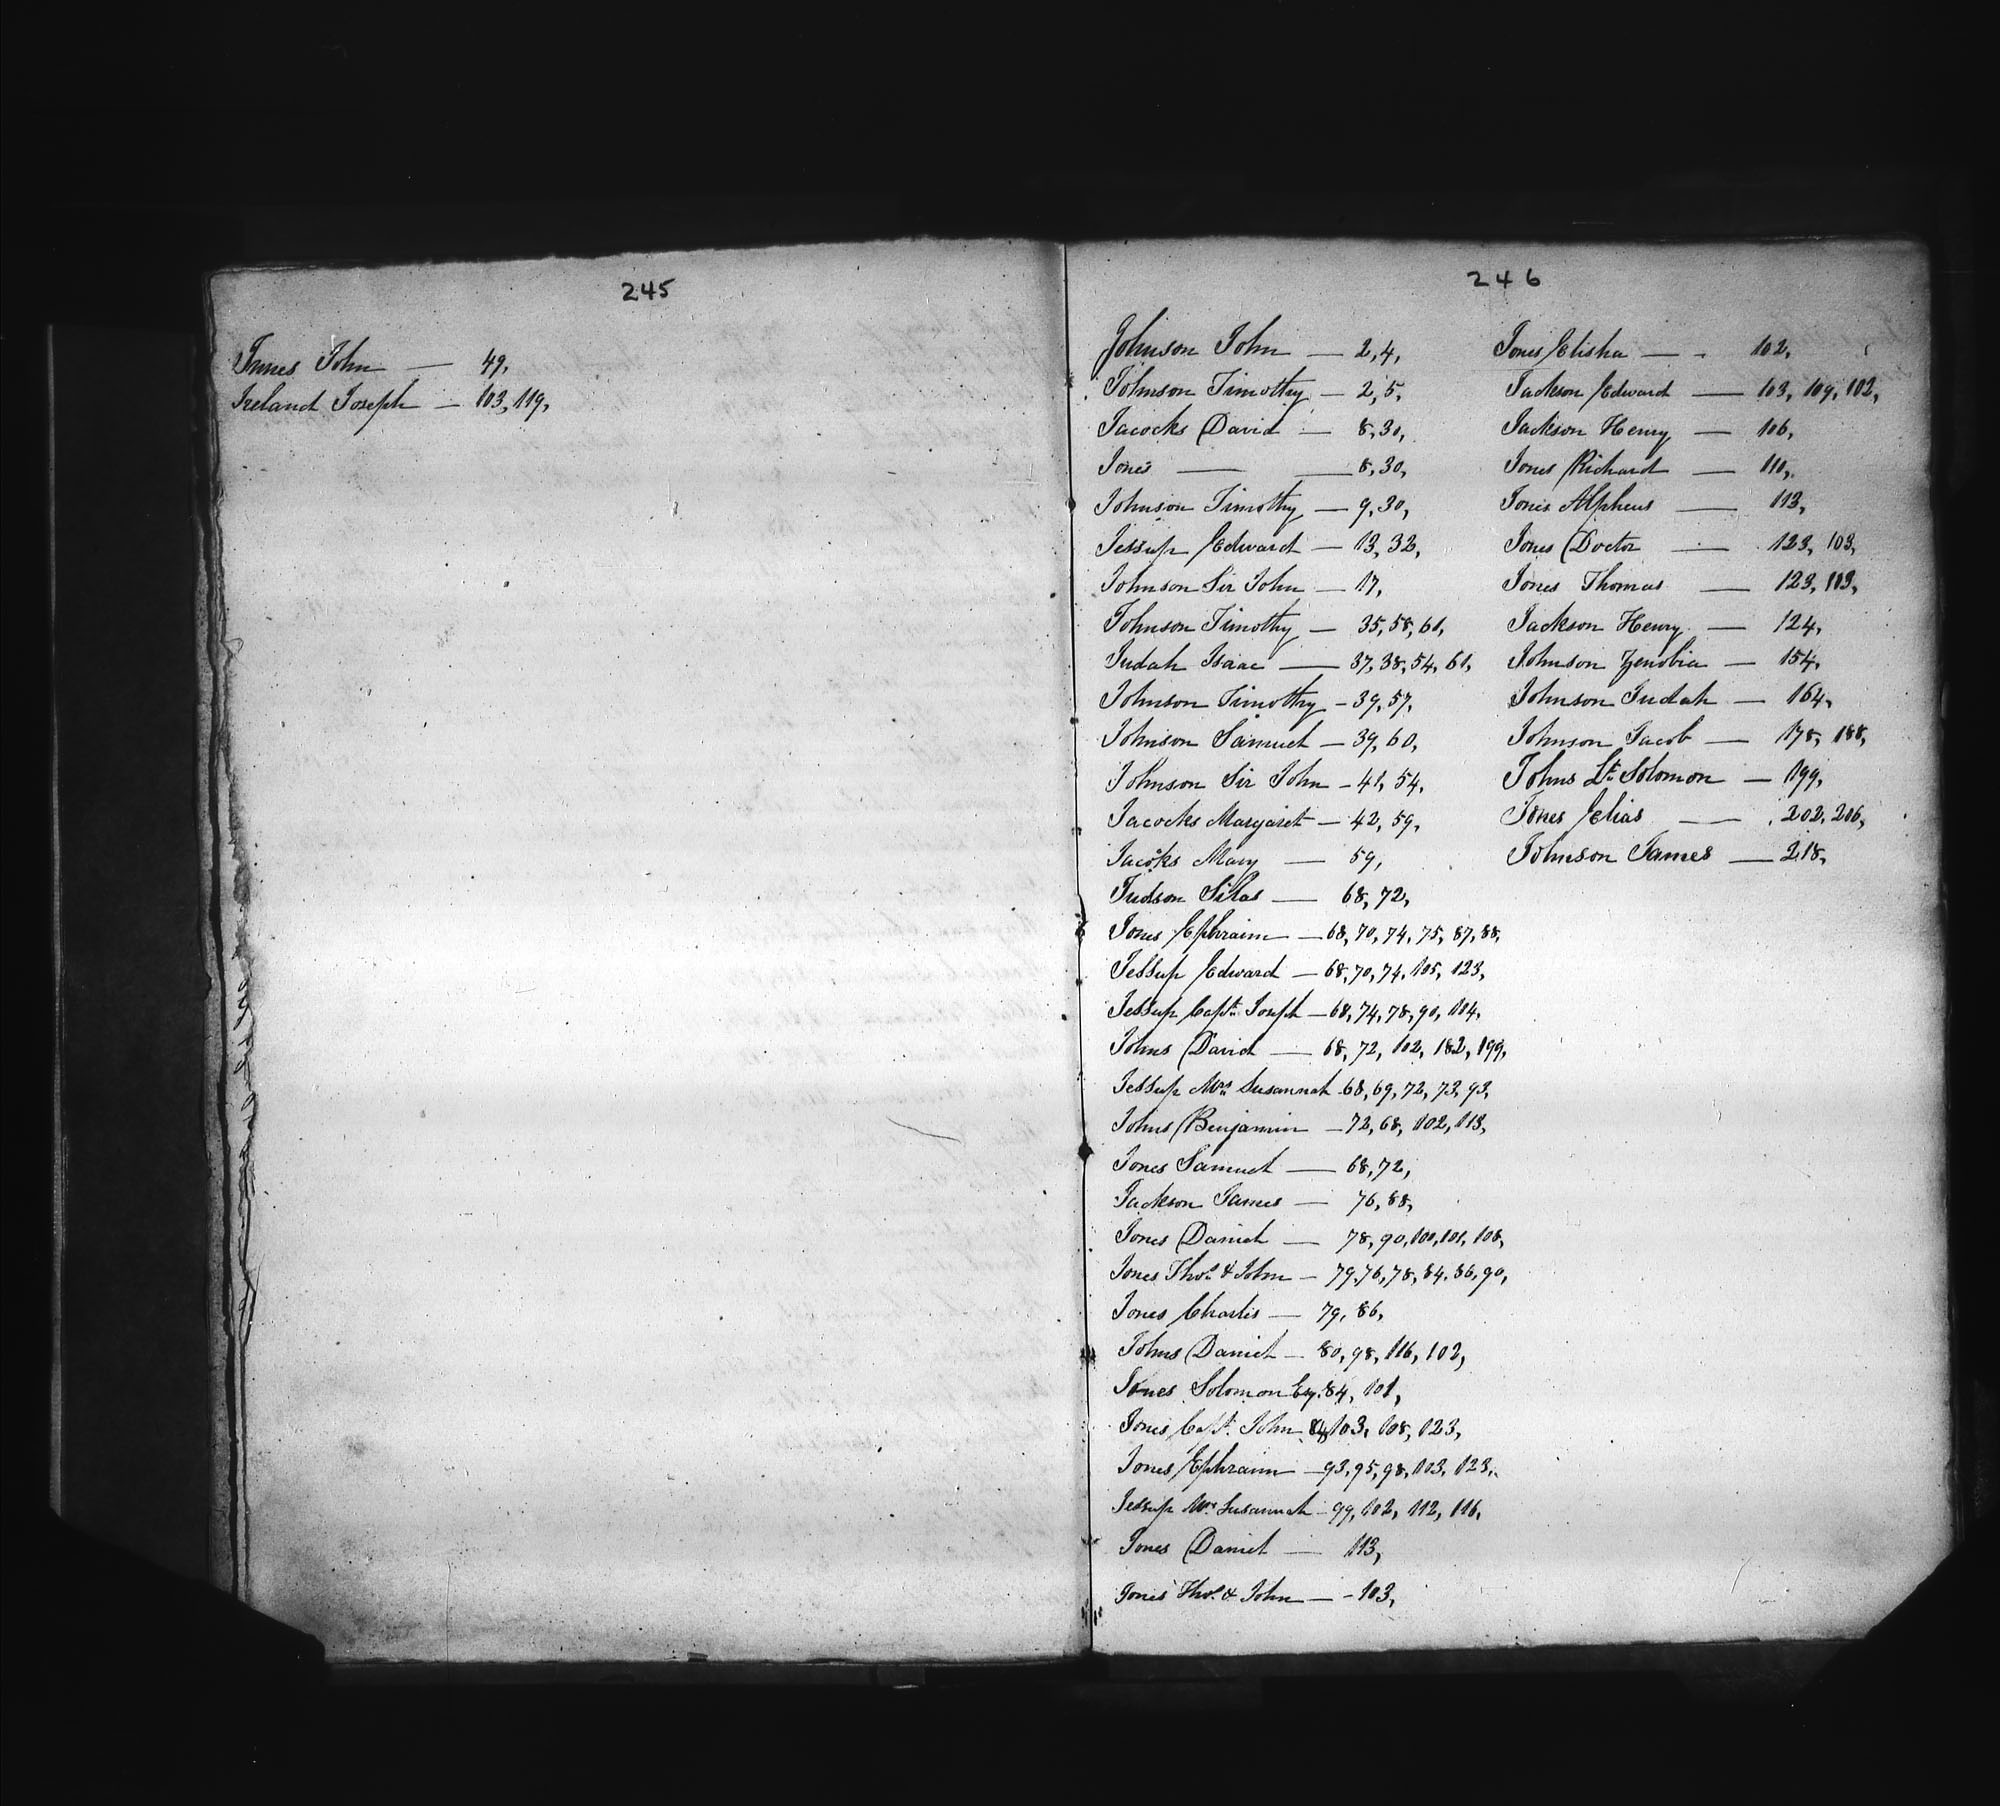 245
Innes John — 49,
Ireland Joseph — 103, 119,
246
Johnson John — 2, 4,
Johnson Timothy — 2, 5,
Jacocks David — 8, 30,
Jones — — 8, 30,
Johnson Timothy — 9, 30,
Jessup Edward — 13, 32,
Johnson Sir John — 17,
Johnson Timothy — 35, 58, 61,
Judah Isaac — 37, 38, 54, 61,
Johnson Timothy — 39, 57,
Johnson Samuel — 39, 60,
Johnson Sir John — 41, 54,
Jacocks Margaret — 42, 59,
Jacoks Mary — 59,
Judson Silas — 68, 72,
Jones Ephraim — 68, 70, 74, 75, 87, 88,
Jessup Edward — 68, 70, 74, 105, 123,
Jessup Capt. Joseph — 68, 74, 78, 90, 104,
Johns David — 68, 72, 102, 182, 199,
Jessup Mrs Susannah - 68, 69, 72, 73, 93,
Johns Benjamin — 72, 68, 102, 113,
Jones Samuel — 68, 72,
Jackson James — 76, 88,
Jones Daniel — 78, 90, 100, 101, 108,
Jones Thos. & John — 79, 76, 78, 84, 86, 90,
Jones Charles — 79, 86,
Johns Daniel — 80, 98, 116, 102,
Jones Solomon Esq. 84, 101,
Jones Capt. John 103, 108, 123,
Jones Ephraim — 93, 95, 98, 103, 123,
Jessup Mrs Susannah - 99, 102, 112, 116,
Jones Daniel — 113,
Jones Thos. & John — - 103,
Jones Elisha — - 102,
Jackson Edward — 103, 109, 102,
Jackson Henry — 106,
Jones Richard — 110,
Jones Alpheus — 113,
Jones Doctor — 123, 103,
Jones Thomas — 123, 113,
Jackson Henry — 124,
Johnson Zenobia — 154,
Johnson Judah — 164,
Johnson Jacob — 178, 188,
Johns Lt. Solomon — 199,
Jones Elias — 202, 206,
Johnson James — 218,